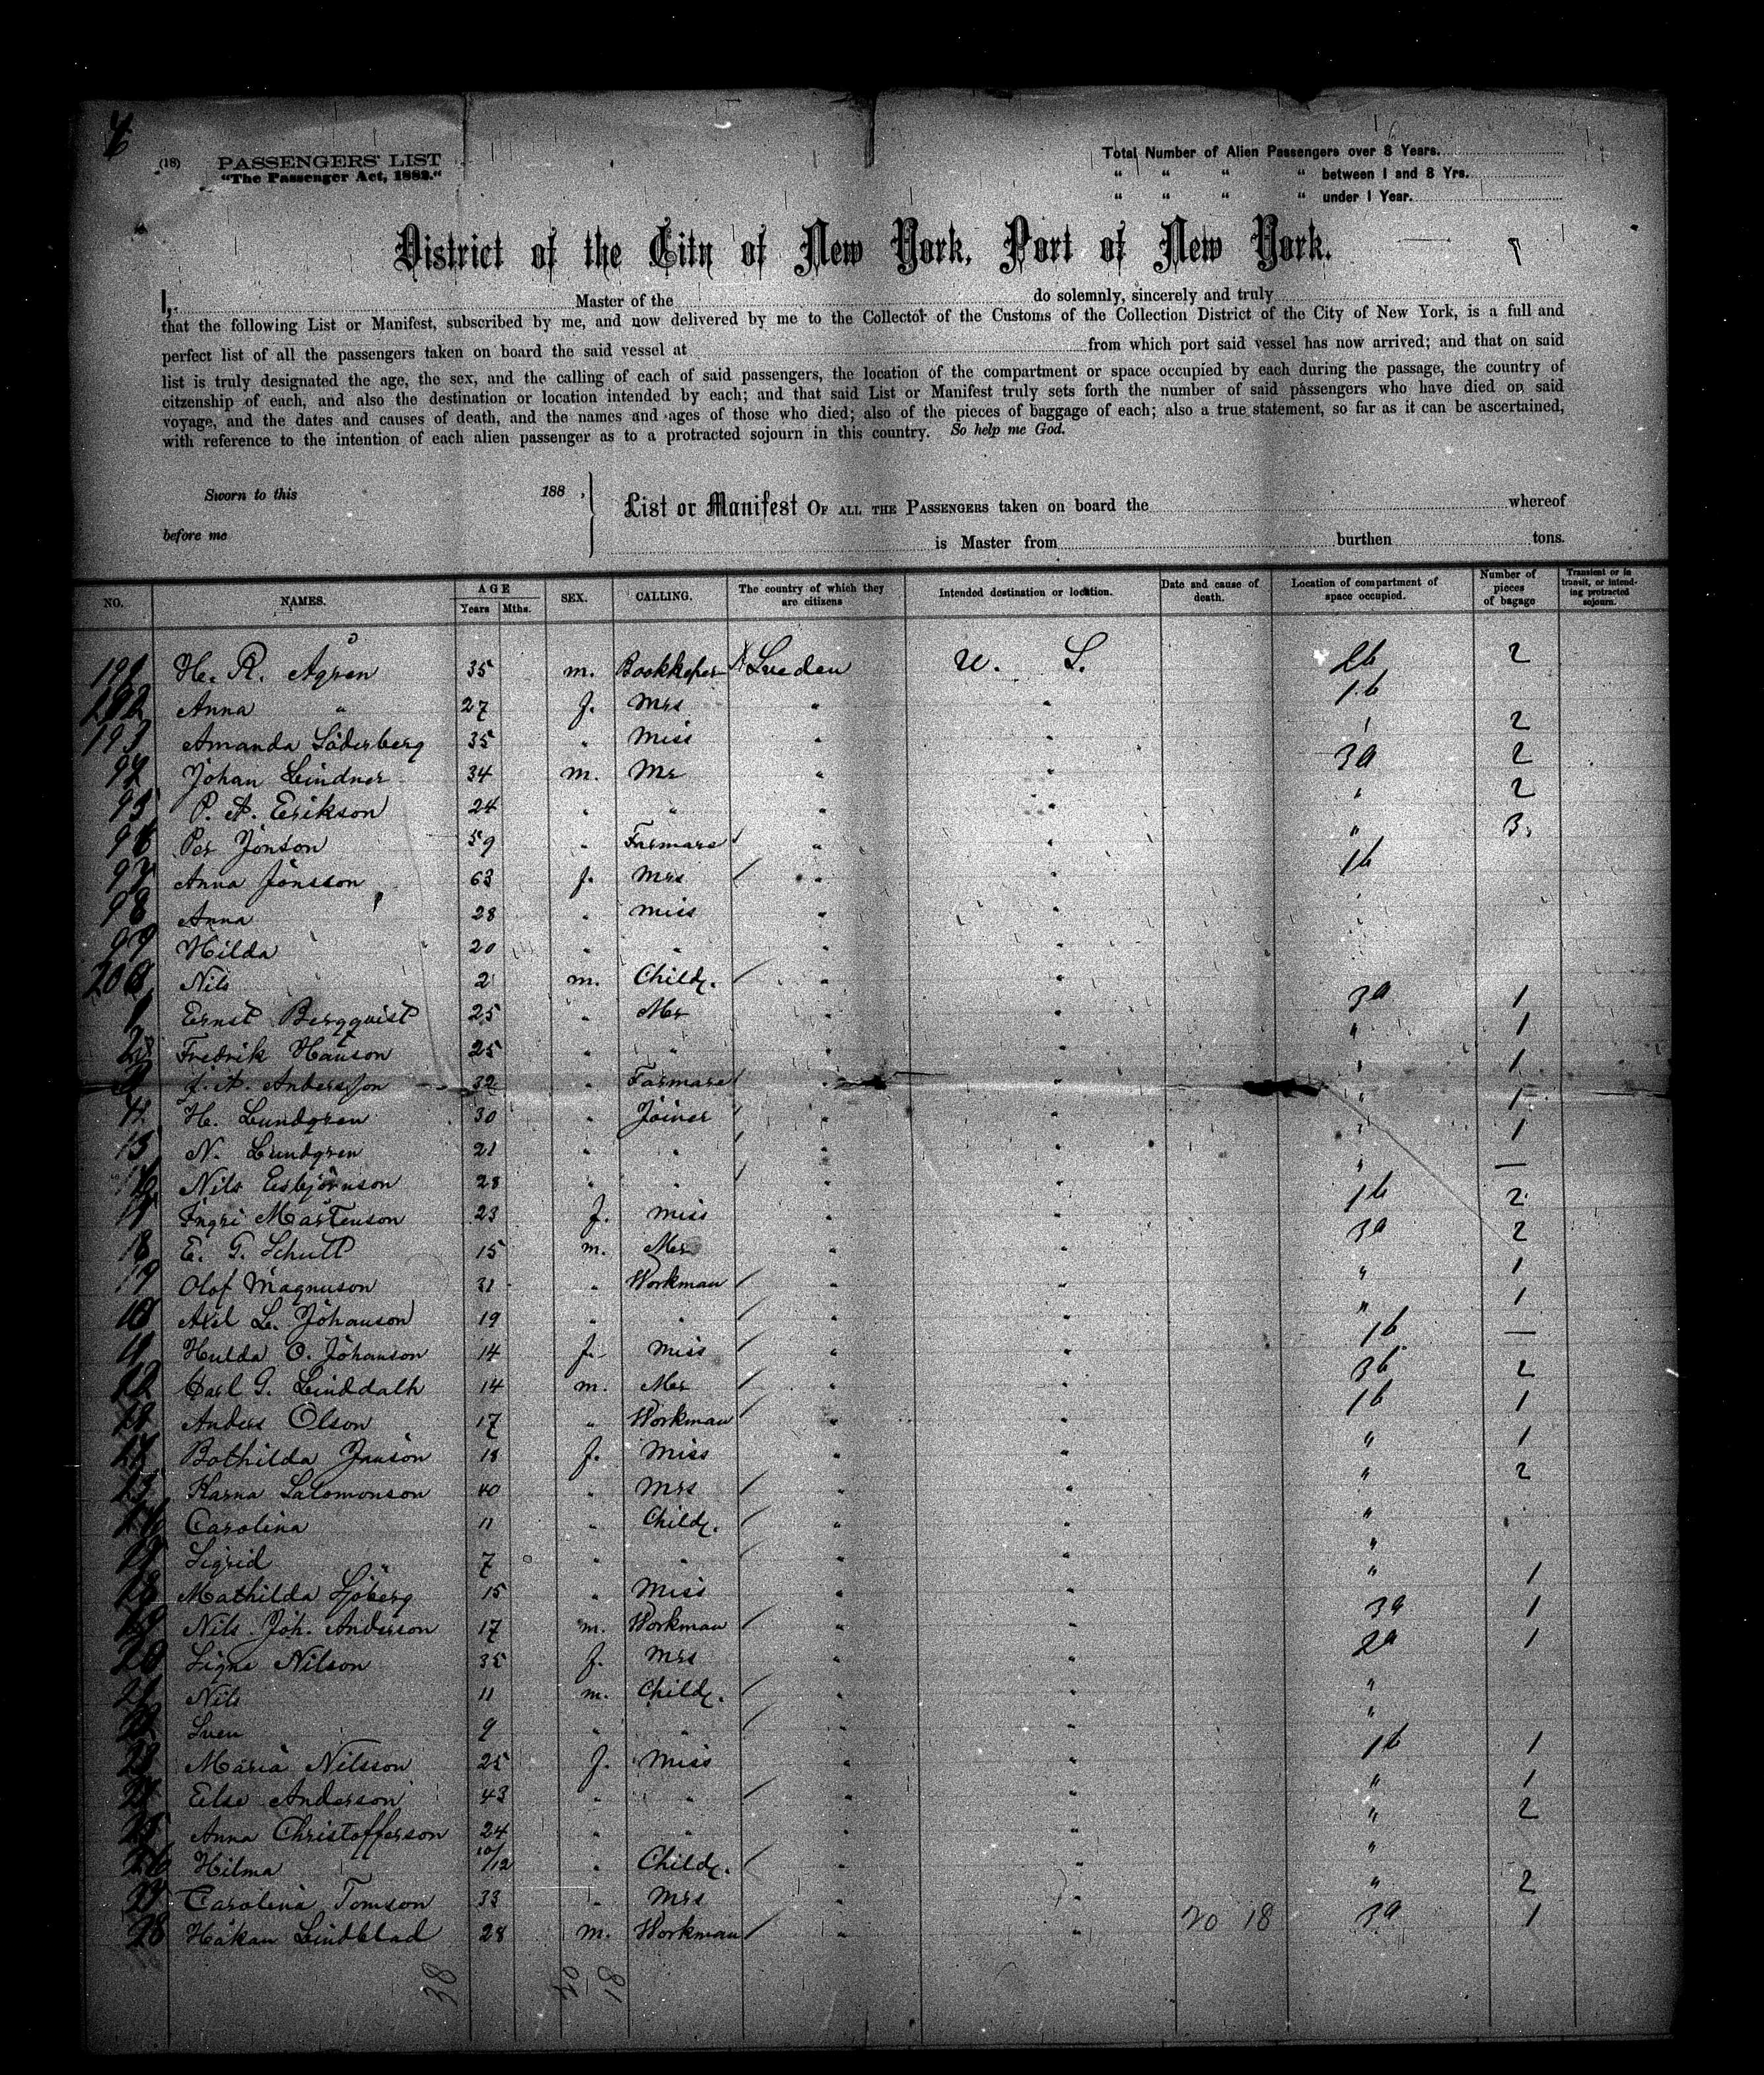 4
(18) PASSENGERS' LIST
"The Passenger Act, 1882."
Total Number of Alien Passengers over 8 Years.
" " " " between 1 and 8 Yrs.
" " " " under 1 Year.
District of the City of New York, Port of New York.
I, Master of the do solemnly, sincerely and truly
that the following List or Manifest, subscribed by me, and now delivered by me to the Collector of the Customs of the Collection District of the City of New York, is a full and
perfect list of all the passengers taken on board the said vessel at from which port said vessel has now arrived; and that on said
list is truly designated the age, the sex, and the calling of each of said passengers, the location of the compartment or space occupied by each during the passage, the country of
citzenship of each, and also the destination or location intended by each; and that said List or Manifest truly sets forth the number of said passengers who have died on said
voyage, and the dates and causes of death, and the names and ages of those who died; also of the pieces of baggage of each; also a true statement, so far as it can be ascertained,
with reference to the intention of each alien passenger as to a protracted sojourn in this country. So help me God.
Sworn to this 188 ,
before me
List or Manifest OF ALL THE PASSENGERS taken on board the whereof
is Master from burthen tons.
NO. NAMES. AGE Years Mths. SEX. CALLING. The country of which they are citizens Intended destination or location. Date and cause of death. Location of compartment of space occupied. Number of pieces of bagage Transient or in transit, or intending protracted sojourn.
191 H. R. Ågren 35 m. Bookkeper Sweden U. S. 2b 2
192 Anna " 27 f. Mrs " " 1b
193 Amanda Söderberg 35 " Miss " " " 2
94 Johan Lindner 34 m. Mr " " 3a 2
95 P. A. Erikson 24 " " " " " 2
96 Per Jonson 59 " Farmare " " " 3
97 Anna Jönsson 63 f. Mrs " " 1b
98 Anna 28 " Miss " " "
99 Hilda 20 " " " " "
200 Nils 2 m. Child. " " "
1 Ernst Bergquist 25 " Mr " " 3a 1
2 Fredrik Hanson 25 " " " " " 1
3 J. A. Andersson 32 " Farmare " " " 1
4 H. Lundgren 30 " Joiner " " " 1
5 N. Lundgren 21 " " " " " 1
6 Nils Esbjörnson 28 " " " " " —
7 Ingri Mårtenson 23 f. Miss " " 1b 2
8 E. G. Schutt 15 m. Mr " " 3a 2
9 Olof Magnuson 31 " Workman " " " 1
10 Axel L. Johanson 19 " " " " " 1
11 Hulda O. Johanson 14 f. Miss " " 1b —
12 Carl G. Linddalh 14 m. Mr " " 3b 2
13 Anders Olson 17 " Workman " " 1b 1
14 Bothilda Janson 18 f. Miss " " " 1
15 Karna Salomonson 40 " Mrs " " " 2
16 Carolina 11 " Child. " " "
17 Sigrid 7 " " " " "
18 Mathilda Sjöberg 15 " Miss " " " 1
19 Nils Joh. Anderson 17 m. Workman " " 3a 1
20 Signe Nilson 35 f. Mrs " " 2a 1
21 Nils 11 m. Child. " " "
22 Sven 9 " " " " "
23 Maria Nilsson 25 f. Miss " " 1b 1
24 Else Anderson 43 " " " " " 1
25 Anna Christofferson 24 " " " " " 2
26 Hilma 10/12 " Child. " " "
27 Carolina Tomson 33 " Mrs " " " 2
28 Håkan Lindblad 28 m. Workman " " 20 18 3a 1
38 20 18